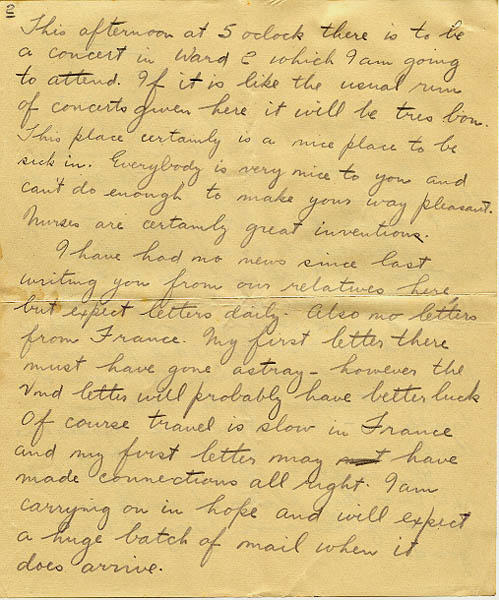 2
This afternoon at 5 oclock there is to be
a concert in Ward E which I am going
to attend. If it is like the usual run
of concerts given here it will be tres bon.
This place certainly is a nice place to be
sick in. Everybody is very nice to you and
can't do enough to make your way pleasant.
Nurses are certainly great inventions.
I have had no news since last
writing you from our relatives here,
but expect letters daily. Also no letters
from France. My first letter there
must have gone astray - however the
2nd letter will probably have better luck
Of course travel is slow in France
and my first letter may have
made connections all right. I am
carrying on in hope and will expect
a huge batch of mail when it
does arrive.